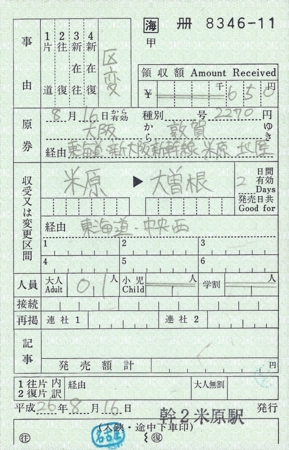 ㊥ 冊 8346-11
甲
事由
1片道
2往復
3新在往
4新在復
区変
領収額 Amount Received
¥ 千 650 円
原券
8月16日から有効 種別 号 2270円
大阪 から 敦賀 ゆき
経由 東海道・新大阪新幹線・米原・北陸
収受又は変更区間
米原 ▶ 大曽根
2日間有効 Days
発売日共 Good for
経由 東海道・中央西
1 2 3
4 5 6
人員 大人 Adult 0,1人 小児 Child 人 学割 人
接続
再掲 連社1 連社2
記事
発売額計
1往片 内
2復片 訳
経由
大人無割
平成26年8月16日 幹2米原駅 発行
(入鋏・途中下車印)
名古屋